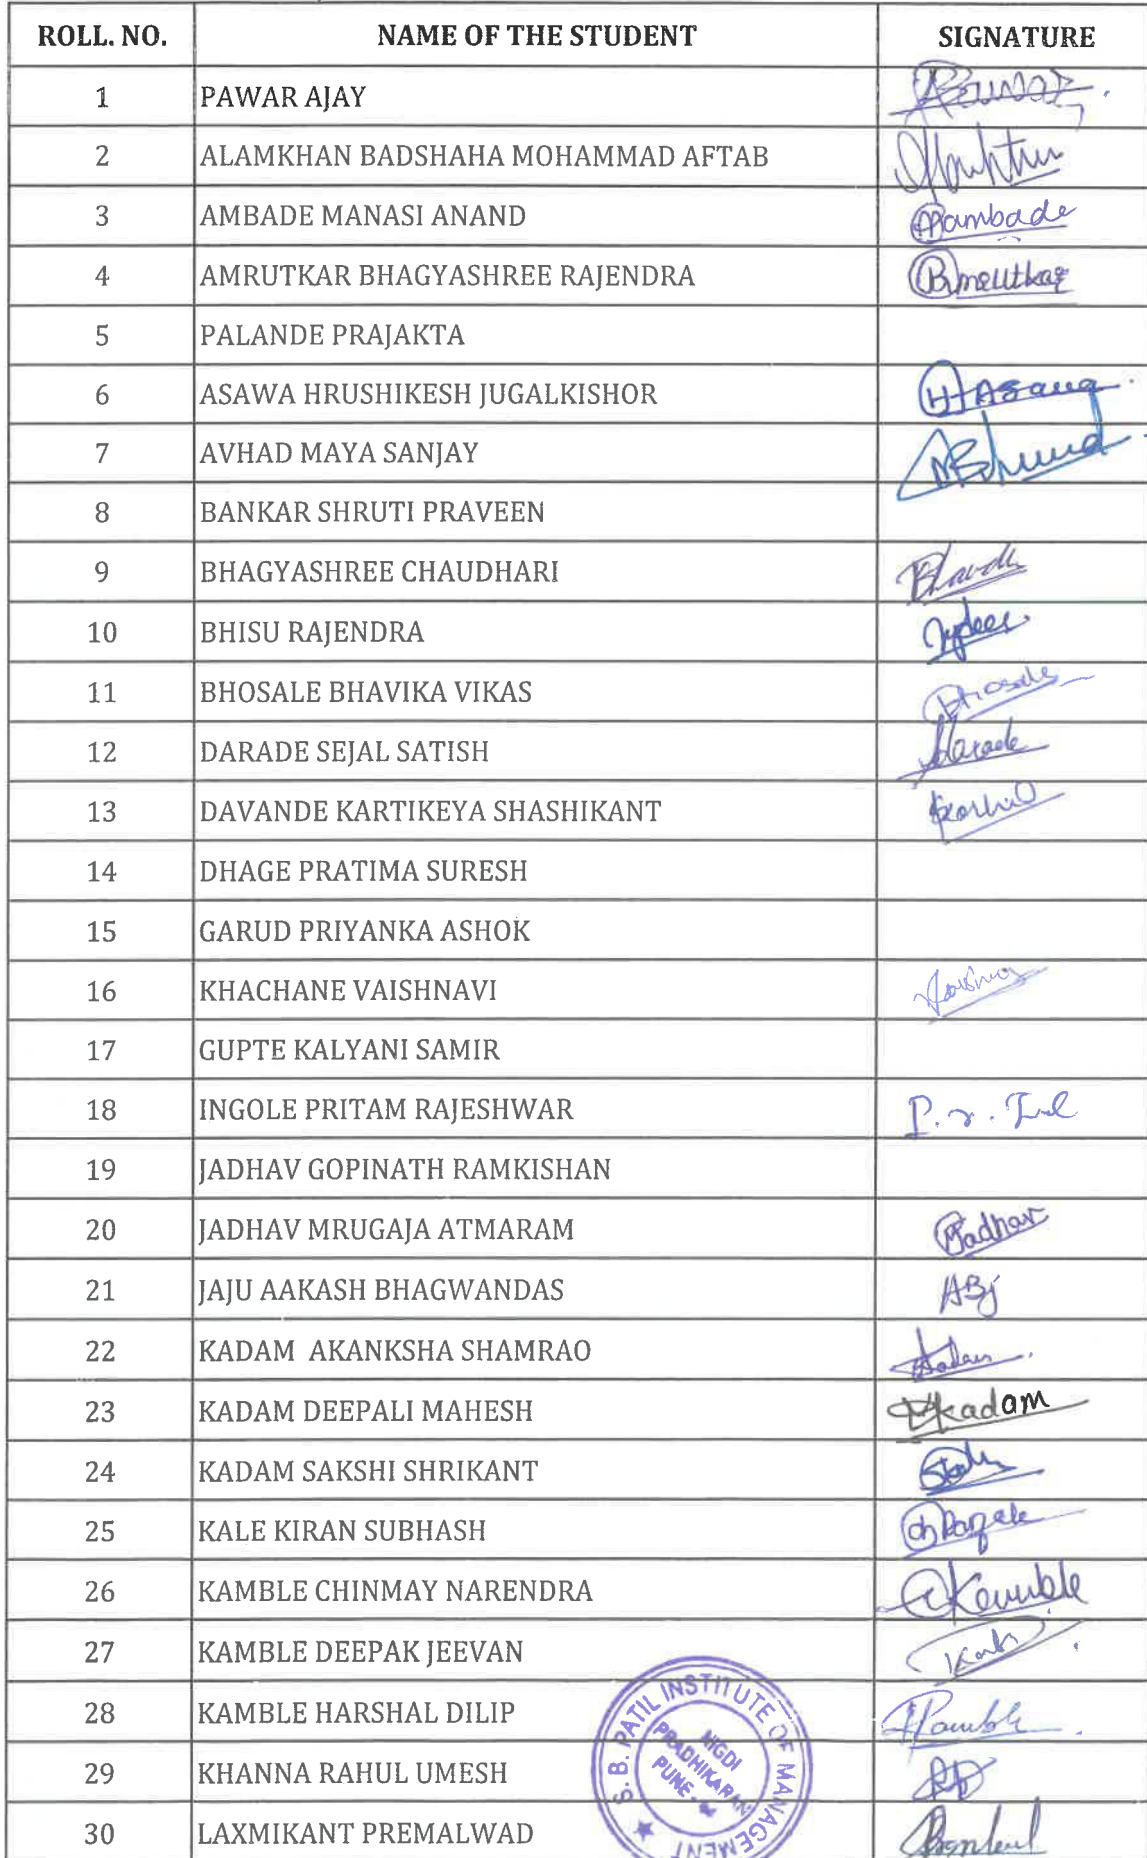 ROLL. NO. NAME OF THE STUDENT SIGNATURE
1 PAWAR AJAY
2 ALAMKHAN BADSHAHA MOHAMMAD AFTAB
3 AMBADE MANASI ANAND Mambade
4 AMRUTKAR BHAGYASHREE RAJENDRA Bmrutkar
5 PALANDE PRAJAKTA
6 ASAWA HRUSHIKESH JUGALKISHOR H Asawa
7 AVHAD MAYA SANJAY
8 BANKAR SHRUTI PRAVEEN
9 BHAGYASHREE CHAUDHARI
10 BHISU RAJENDRA
11 BHOSALE BHAVIKA VIKAS Bhosale
12 DARADE SEJAL SATISH Darade
13 DAVANDE KARTIKEYA SHASHIKANT
14 DHAGE PRATIMA SURESH
15 GARUD PRIYANKA ASHOK
16 KHACHANE VAISHNAVI
17 GUPTE KALYANI SAMIR
18 INGOLE PRITAM RAJESHWAR
19 JADHAV GOPINATH RAMKISHAN
20 JADHAV MRUGAJA ATMARAM Jadhav
21 JAJU AAKASH BHAGWANDAS ABj
22 KADAM AKANKSHA SHAMRAO
23 KADAM DEEPALI MAHESH Dkadam
24 KADAM SAKSHI SHRIKANT
25 KALE KIRAN SUBHASH
26 KAMBLE CHINMAY NARENDRA CKamble
27 KAMBLE DEEPAK JEEVAN
28 KAMBLE HARSHAL DILIP HKamble
29 KHANNA RAHUL UMESH
30 LAXMIKANT PREMALWAD
S. B. PATIL INSTITUTE OF MANAGEMENT
NIGDI
PRADHIKARAN
PUNE